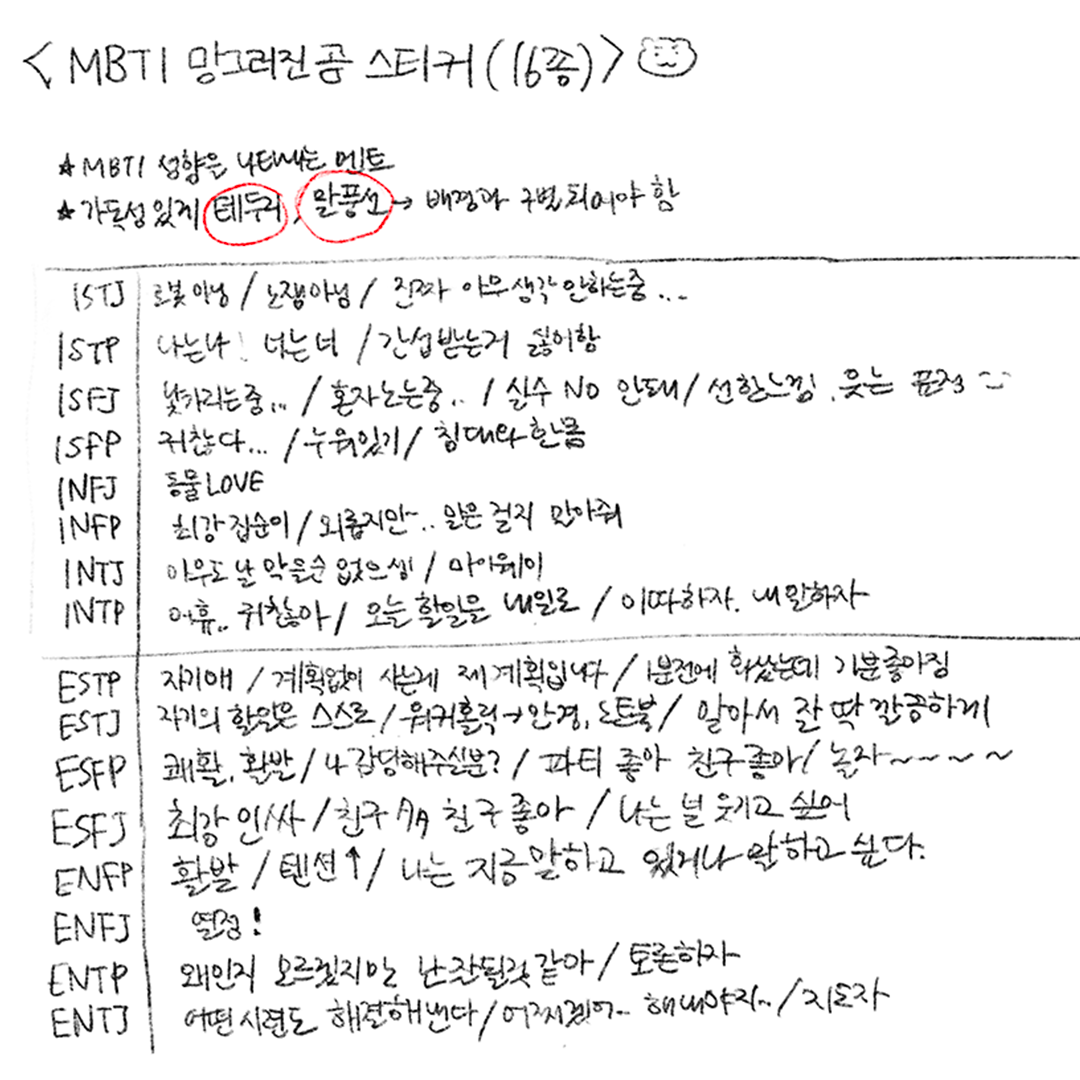 < MBTI 망그러진 곰 스티커 (16종) >
★ MBTI 성향을 나타내는 멘트
★ 가독성있게 테두리, 말풍선 → 배경과 구별되어야 함
ISTJ 로봇아님 / 노잼아님 / 진짜 아무생각안하는중...
ISTP 나는나! 너는너 / 간섭받는거 싫어함
ISFJ 낯가리는중... / 혼자노는중.. / 실수 NO 안돼 / 선한느낌, 웃는 표정
ISFP 귀찮다... / 누워있기 / 침대와한몸
INFJ 동물LOVE
INFP 최강집순이 / 외롭지만~.. 말은 걸지 말아줘
INTJ 아무도 날 막을순 없으셈 / 마이웨이
INTP 어휴.. 귀찮아 / 오늘 할일을 내일로 / 이따하자. 내일하자
ESTP 자기애 / 계획없이 사는게 제 계획입니다 / 1분전에 화났는데 기분좋아짐
ESTJ 자기의 할일은 스스로 / 워커홀릭→안경, 노트북 / 알아서 잘 딱 깔끔하게
ESFP 쾌활, 활발 / 나 감당해주실분? / 파티 좋아 친구좋아 / 놀자~~~~~
ESFJ 최강 인싸 / 친구 친구좋아 / 나는 널 웃기고 싶어
ENFP 활발 / 텐션↑ / 나는 지금말하고 있거나 말하고 싶다.
ENFJ 열정!
ENTP 왜인지 모르겠지만 난 잘될것 같아 / 토론하자
ENTJ 어떤시련도 해결해낸다 / 어쩌겠어.. 해내야지.. / 지도자